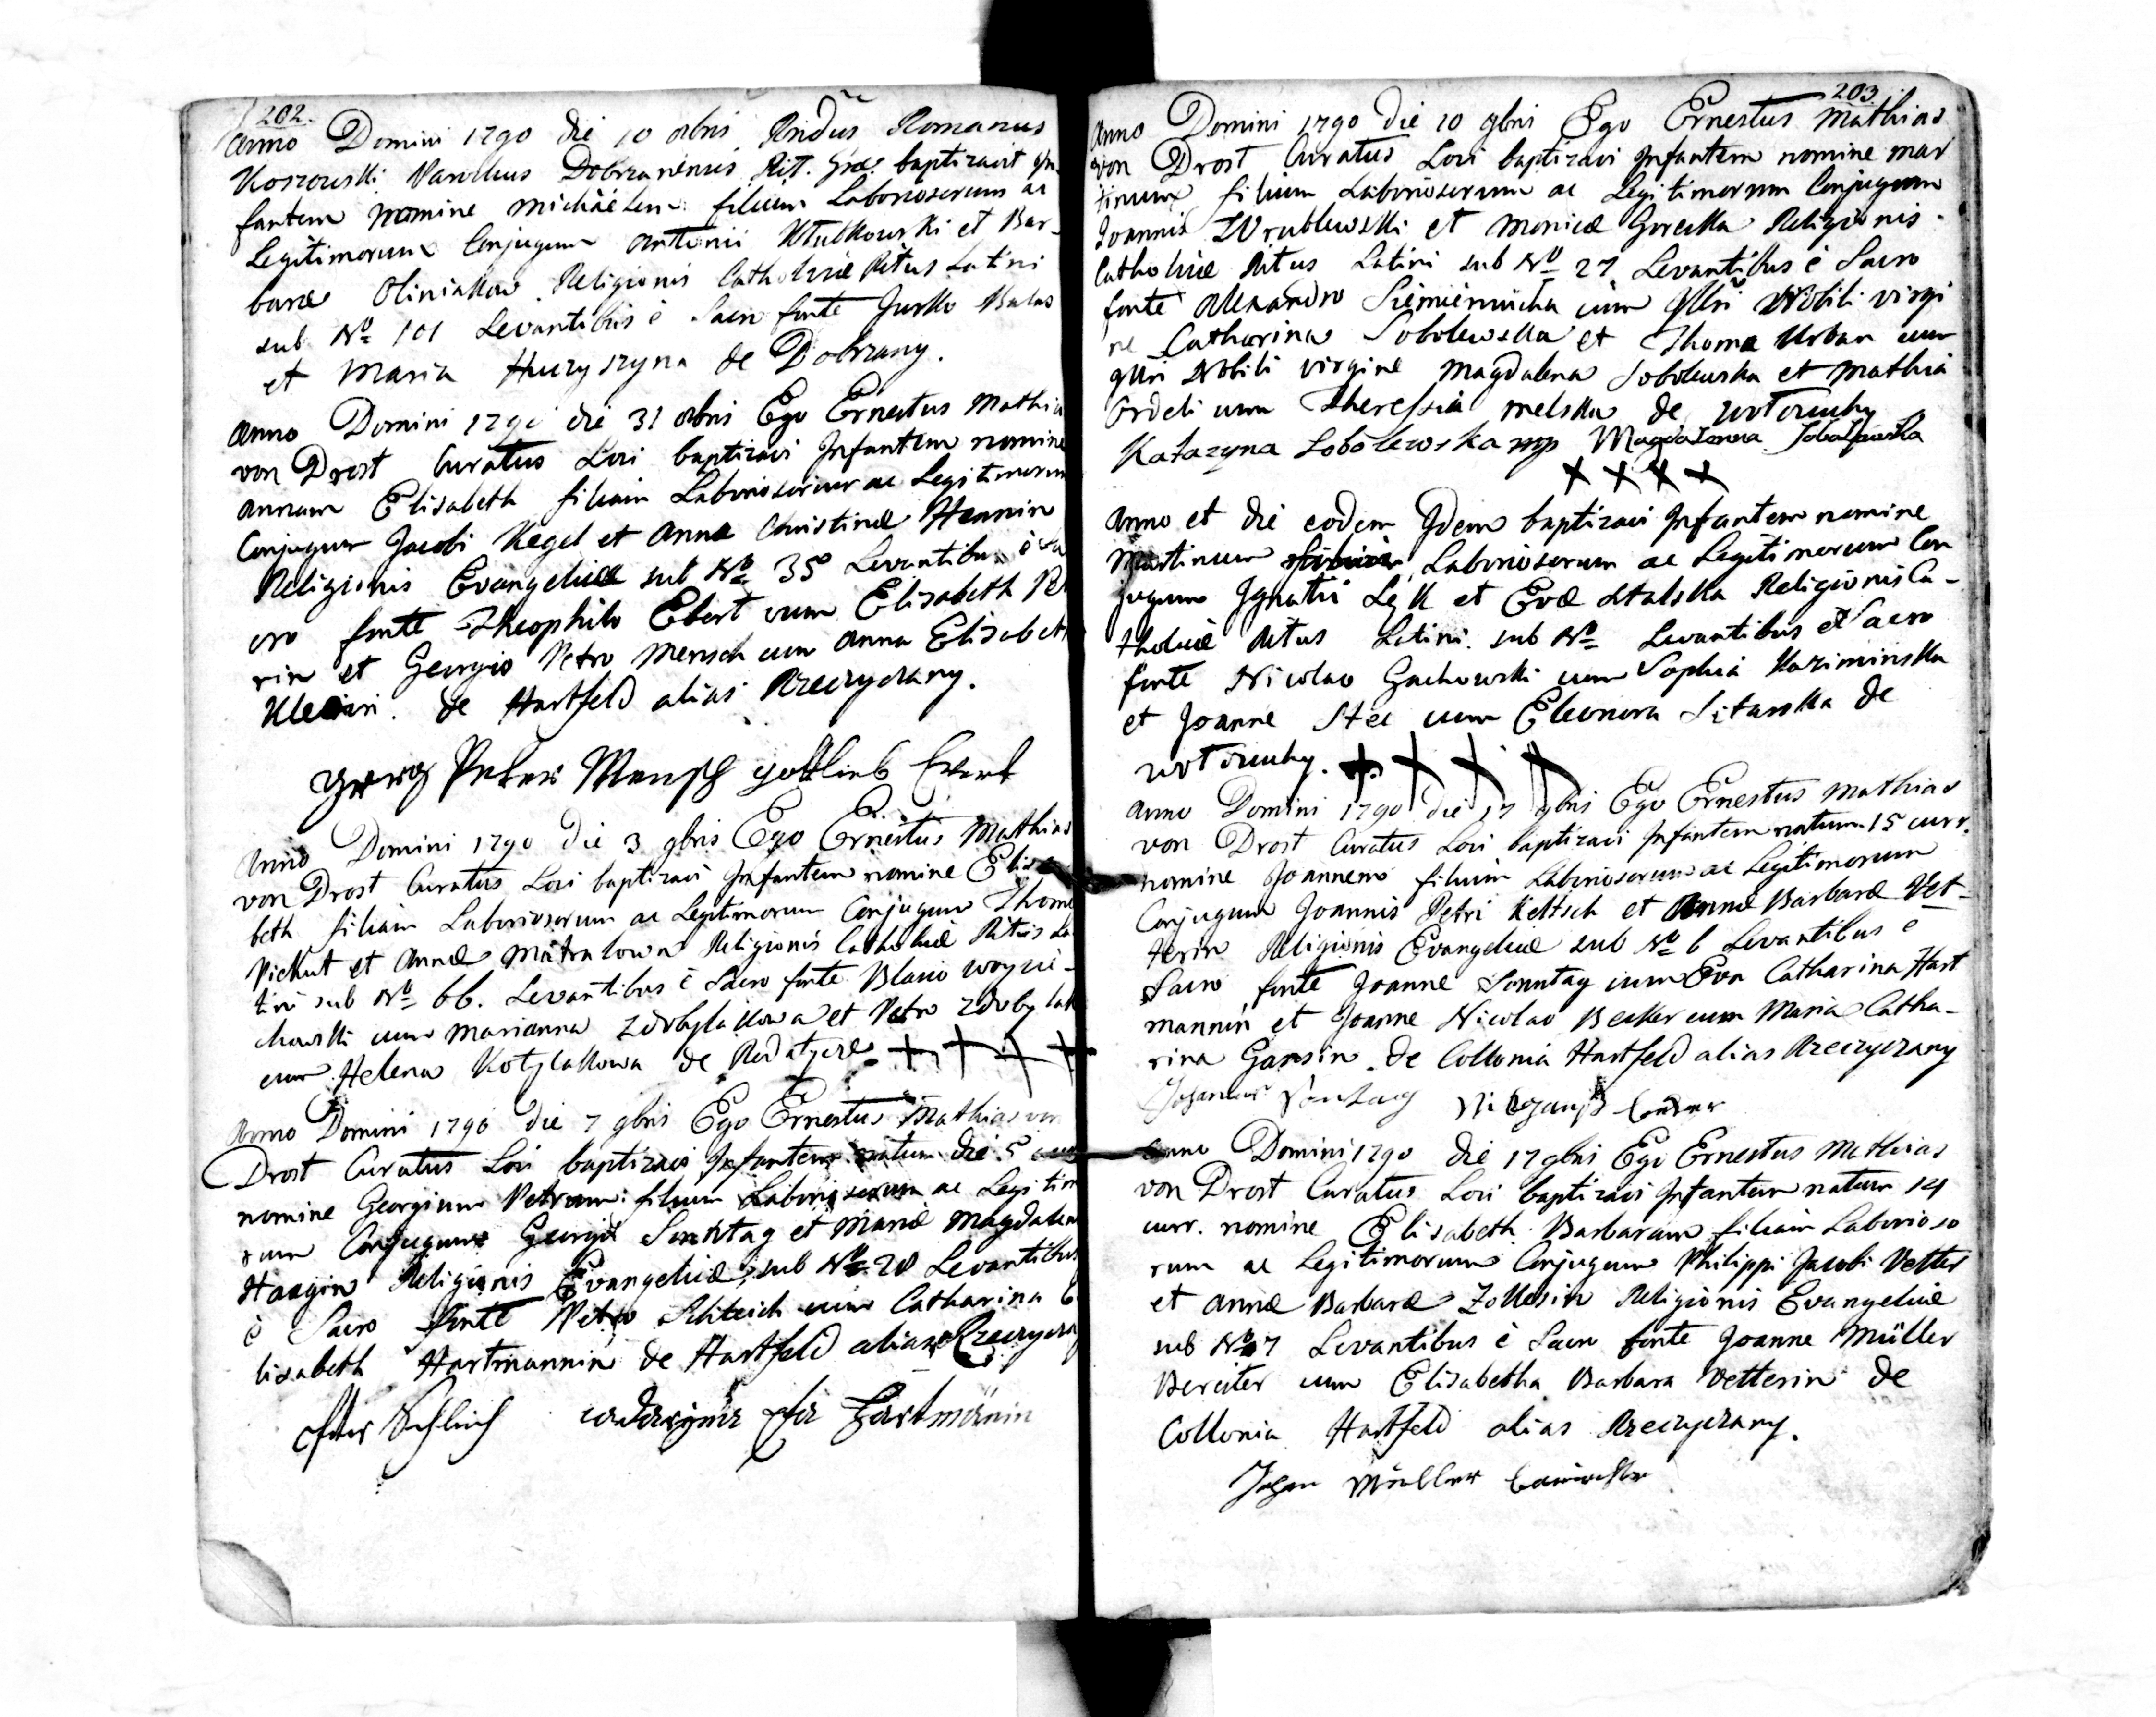 202.
Anno Domini 1790 die 10 obris Rndus Romanus
Koszowski Parochus Dobrzanensis Rit. Græ. baptizavit In-
fantem nomine michäelem filium Laboriosorum ac
Legitimorum Conjugum Antonii Kłutkowski et Bar-
baræ Oliniakow Religionis Catholicæ Ritus Latini
sub No 101 Levantibus è Sacro fonte Jurko Balas
et Maria Huzyszyna de Dobrzany.
Anno Domini 1790 die 31 obris Ego Ernestus Mathia
von Drost Curatus Loci baptizavi Infantem nomine
annam Elisabeth filiam Laboriosorum ac Legitimorum
Conjugum Jacobi Kegel et Annæ Christinæ Hennin
Religionis Evangelicæ sub No 35 Levantibus è Sa
cro fonte Theophilo Ebert cum Elisabeth Pet
rin et Georgio Petro Mensch cum Anna Elisabeth
Kleinin. de Hartfeld alias Rzeczyczany.
Georg Peter Mensch gottlieb Evert
Anno Domini 1790 die 3 9bris Ego Ernestus Mathias
von Drost Curatus Loci baptizavi Infantem nomine Elisa
beth filiam Laboriosorum ac Legitimorum Conjugum Thomæ
Pickut et Annæ Matralowna Religionis Catholicæ Ritus La
tini sub No 66. Levantibus è Sacro fonte Blasio Woycie-
chowski cum Marianna Zdobylakowa et Petro Zdobylak
cum Helena Kotylakowa de Rodatycze + + + +
Anno Domini 1790 die 7 9bris Ego Ernestus Mathias von
Drost Curatus Loci baptizavi Infantem natum die 5 curr
nomine Georgium Petrum filium Laboriosorum ac Legitimo
rum Conjugum Georgii Sonntag et Mariæ Magdalenæ
Haagin Religionis Evangelicæ sub No 20 Levantibus
è Sacro fonte Petro Schleich cum Catharina E
lisabeth Hartmannin de Hartfeld alias Rzeczyczany
Peter Schleich Hartmänin
203.
Anno Domini 1790 die 10 9bris Ego Ernestus Mathias
von Drost Curatus Loci baptizavi Infantem nomine mar
tinum filium Laboriosorum ac Legitimorum Conjugum
Joannis Wrublewski et Monicæ Gorecka Religionis
Catholicæ Ritus Latini sub No 27 Levantibus è Sacro
fonte Alexandro Siemiennicha cum Nobili virgi
ne Catharina Sobolewska et Thoma Urban cum
Nobili virgine Magdalena Sobolewska et Mathia
Ordeli cum Theressia melska de wotczuchy
Katazyna Sobolewska mp Magdalenna Sobolewska
+ + + +
Anno et die eodem Idem baptizavi Infantem nomine
Martinum filium Laboriosorum ac Legitimorum Con
jugum Ignatii Lęk et Evæ Stalska Religionis Ca-
tholicæ Ritus Latini sub No Levantibus è Sacro
fonte Nicolao Gachowski cum Sophia Kaziminska
et Joanne Stec cum Eleonora Sitarska de
wotczuchy. + + + +
Anno Domini 1790 die 17 9bris Ego Ernestus Mathias
von Drost Curatus Loci baptizavi Infantem natum 15 curr.
nomine Joannem filium Laboriosorum ac Legitimorum
Conjugum Joannis Petri Keltsch et Annæ Barbaræ Vet-
terin Religionis Evangelicæ sub No 6 Levantibus è
Sacro fonte Joanne Sonntag cum Eva Catharina Hart
mannin et Joanne Nicolao Becker cum Maria Catha-
rina Gansin de Collonia Hartfeld alias Rzeczyczany
Johannes Sontag
Anno Domini 1790 die 17 9bris Ego Ernestus Mathias
von Drost Curatus Loci baptizavi Infantem natum 14
curr. nomine Elisabeth Barbaram filiam Laborioso
rum ac Legitimorum Conjugum Philippi Jacobi Vetter
et Annæ Barbaræ Zollesin Religionis Evangelicæ
sub No 7 Levantibus è Sacro fonte Joanne Müller
Bereiter cum Elisabetha Barbara Vetterin de
Collonia Hartfeld alias Rzeczyczany.
Johan Müller